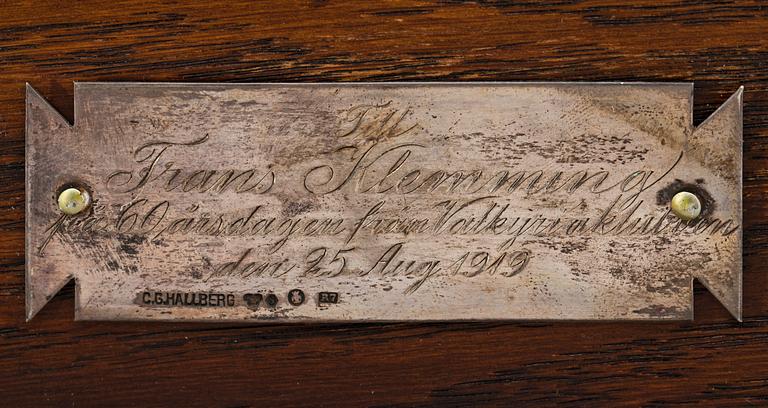 Till
Frans Klemming
på 60 årsdagen från Valkyriaklubben
den 25 Aug 1919
C.G.HALLBERG R7